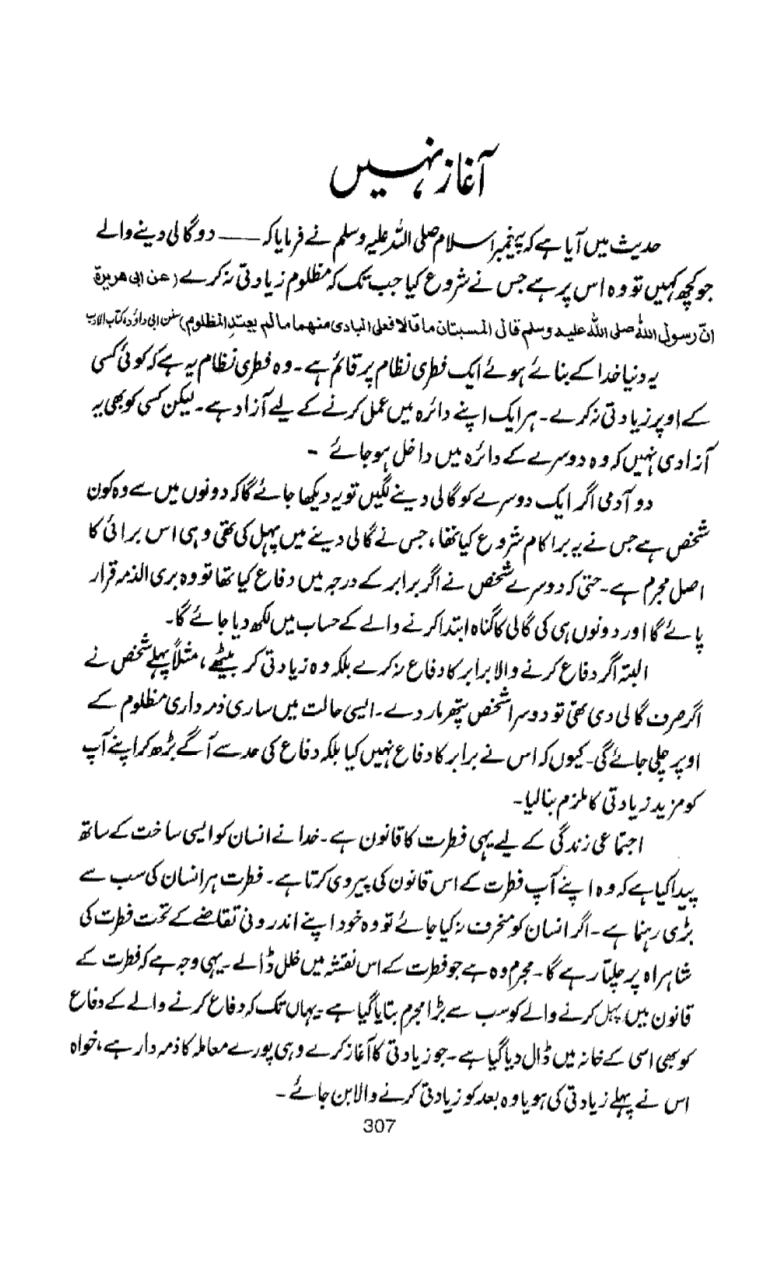 آغاز نہیں
حدیث میں آیا ہے کہ پیغمبر اسلام صلی اللہ علیہ وسلم نے فرمایا کہ ــــــ دو گالی دینے والے
جو کچھ کہیں تو وہ اس پر ہے جس نے شروع کیا جب تک کہ مظلوم زیادتی نہ کرے (عن ابی ھریرة
انّ رسول اللہ صلی اللہ علیہ وسلم قال المستبان ما قالا فعلی البادی منھما ما لم یعتد المظلوم) سنن ابی داؤد، کتاب الادب
یہ دنیا خدا کے بنائے ہوئے ایک فطری نظام پر قائم ہے۔ وہ فطری نظام یہ ہے کہ کوئی کسی
کے اوپر زیادتی نہ کرے۔ ہر ایک اپنے دائرہ میں عمل کرنے کے لیے آزاد ہے۔ لیکن کسی کو بھی یہ
آزادی نہیں کہ وہ دوسرے کے دائرہ میں داخل ہو جائے ۔
دو آدمی اگر ایک دوسرے کو گالی دینے لگیں تو یہ دیکھا جائے گا کہ دونوں میں سے وہ کون
شخص ہے جس نے یہ برا کام شروع کیا تھا، جس نے گالی دینے میں پہل کی تھی وہی اس برائی کا
اصل مجرم ہے۔ حتیٰ کہ دوسرے شخص نے اگر برابر کے درجہ میں دفاع کیا تھا تو وہ بری الذمہ قرار
پائے گا اور دونوں ہی کی گالی کا گناہ ابتدا کرنے والے کے حساب میں لکھ دیا جائے گا۔
البتہ اگر دفاع کرنے والا برابر کا دفاع نہ کرے بلکہ وہ زیادتی کر بیٹھے، مثلاً پہلے شخص نے
اگر صرف گالی دی تھی تو دوسرا شخص پتھر مار دے۔ ایسی حالت میں ساری ذمہ داری مظلوم کے
اوپر چلی جائے گی۔ کیوں کہ اس نے برابر کا دفاع نہیں کیا بلکہ دفاع کی حد سے آگے بڑھ کر اپنے آپ
کو مزید زیادتی کا ملزم بنا لیا۔
اجتماعی زندگی کے لیے یہی فطرت کا قانون ہے۔ خدا نے انسان کو ایسی ساخت کے ساتھ
پیدا کیا ہے کہ وہ اپنے آپ فطرت کے اس قانون کی پیروی کرتا ہے۔ فطرت ہر انسان کی سب سے
بڑی رہنما ہے۔ اگر انسان کو منحرف نہ کیا جائے تو وہ خود اپنے اندرونی تقاضے کے تحت فطرت کی
شاہراہ پر چلتا رہے گا۔ مجرم وہ ہے جو فطرت کے اس نقشہ میں خلل ڈالے۔ یہی وجہ ہے کہ فطرت کے
قانون میں پہل کرنے والے کو سب سے بڑا مجرم بتایا گیا ہے۔ یہاں تک کہ دفاع کرنے والے کے دفاع
کو بھی اسی کے خانہ میں ڈال دیا گیا ہے۔ جو زیادتی کا آغاز کرے وہی پورے معاملہ کا ذمہ دار ہے، خواہ
اس نے پہلے زیادتی کی ہو یا وہ بعد کو زیادتی کرنے والا بن جائے ۔
307